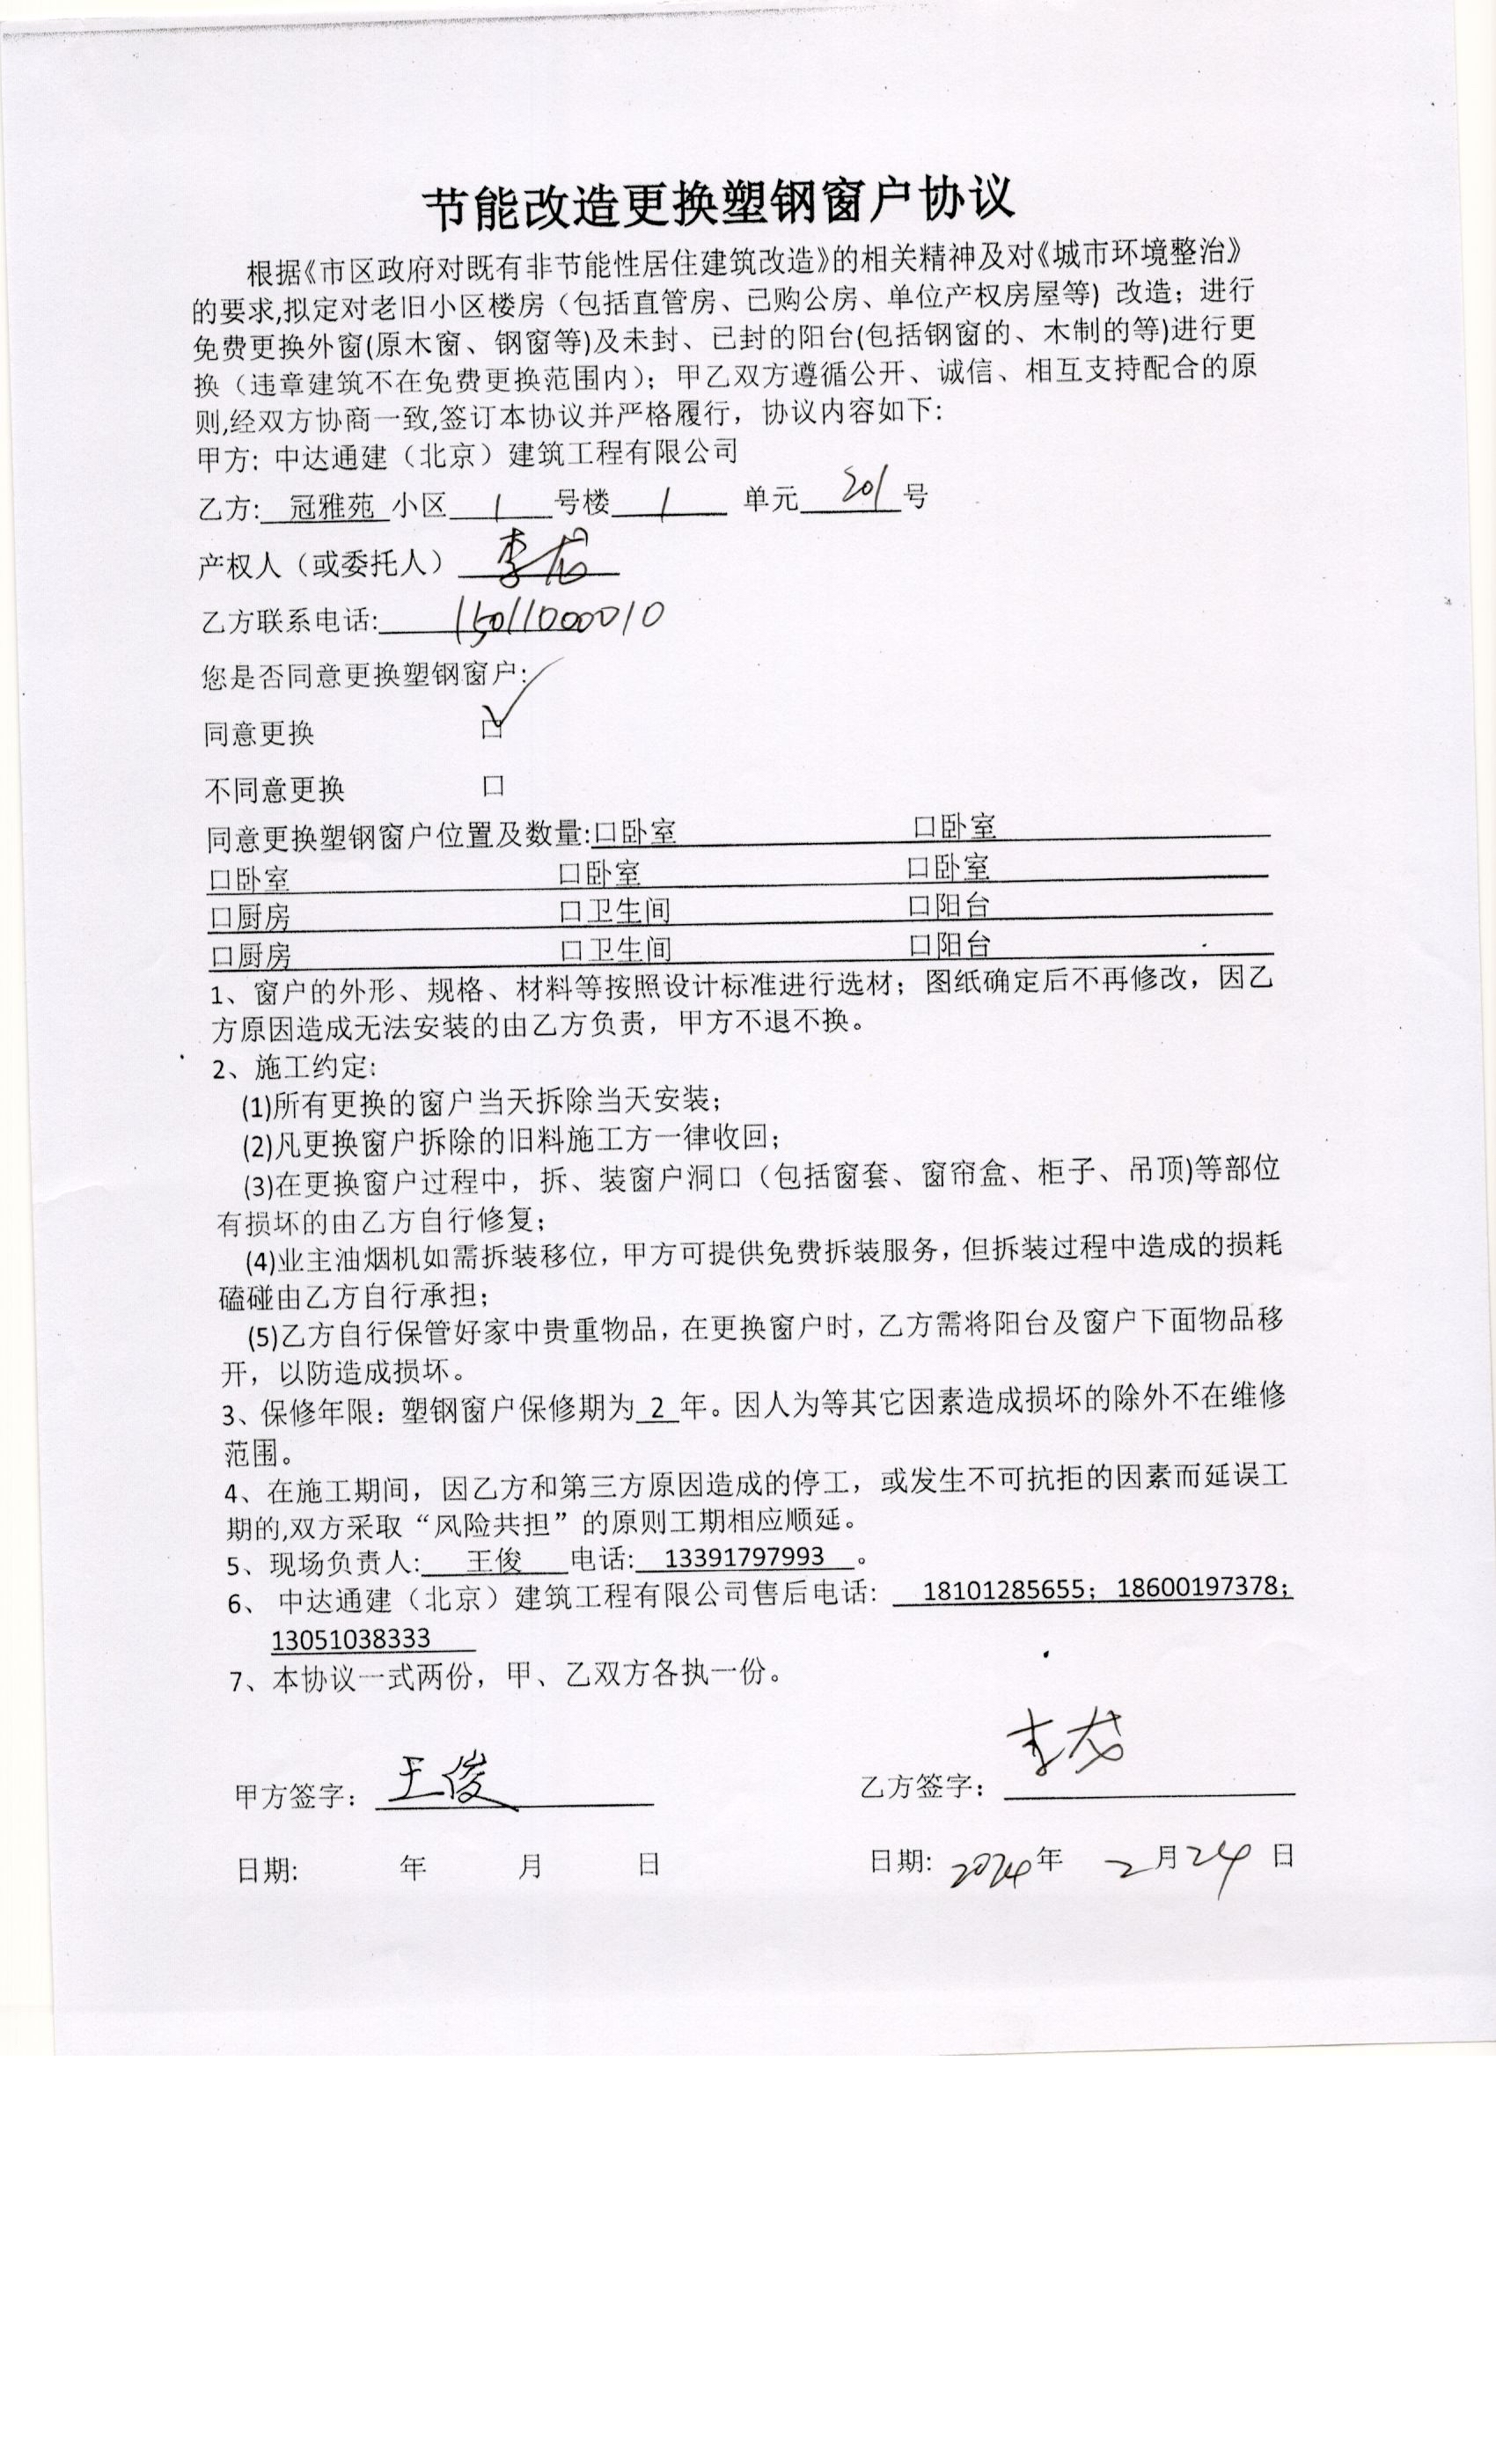 节能改造更换塑钢窗户协议
根据《市区政府对既有非节能性居住建筑改造》的相关精神及对《城市环境整治》
的要求,拟定对老旧小区楼房（包括直管房、已购公房、单位产权房屋等）改造；进行
免费更换外窗(原木窗、钢窗等)及未封、已封的阳台(包括钢窗的、木制的等)进行更
换（违章建筑不在免费更换范围内）；甲乙双方遵循公开、诚信、相互支持配合的原
则,经双方协商一致,签订本协议并严格履行，协议内容如下:
甲方: 中达通建（北京）建筑工程有限公司
乙方: 冠雅苑 小区 1 号楼 1 单元 201 号
产权人（或委托人） 李龙
乙方联系电话: 15011000010
您是否同意更换塑钢窗户:
同意更换 ☑
不同意更换 口
同意更换塑钢窗户位置及数量:口卧室 口卧室
口卧室 口卧室 口卧室
口厨房 口卫生间 口阳台
口厨房 口卫生间 口阳台
1、窗户的外形、规格、材料等按照设计标准进行选材；图纸确定后不再修改，因乙
方原因造成无法安装的由乙方负责，甲方不退不换。
2、施工约定:
(1)所有更换的窗户当天拆除当天安装；
(2)凡更换窗户拆除的旧料施工方一律收回；
(3)在更换窗户过程中，拆、装窗户洞口（包括窗套、窗帘盒、柜子、吊顶)等部位
有损坏的由乙方自行修复；
(4)业主油烟机如需拆装移位，甲方可提供免费拆装服务，但拆装过程中造成的损耗
磕碰由乙方自行承担；
(5)乙方自行保管好家中贵重物品，在更换窗户时，乙方需将阳台及窗户下面物品移
开，以防造成损坏。
3、保修年限：塑钢窗户保修期为 2 年。因人为等其它因素造成损坏的除外不在维修
范围。
4、在施工期间，因乙方和第三方原因造成的停工，或发生不可抗拒的因素而延误工
期的,双方采取“风险共担”的原则工期相应顺延。
5、现场负责人: 王俊 电话: 13391797993 。
6、 中达通建（北京）建筑工程有限公司售后电话: 18101285655；18600197378；
13051038333
7、本协议一式两份，甲、乙双方各执一份。
甲方签字： 王俊 乙方签字： 李龙
日期: 年 月 日 日期: 2024年 2月24日